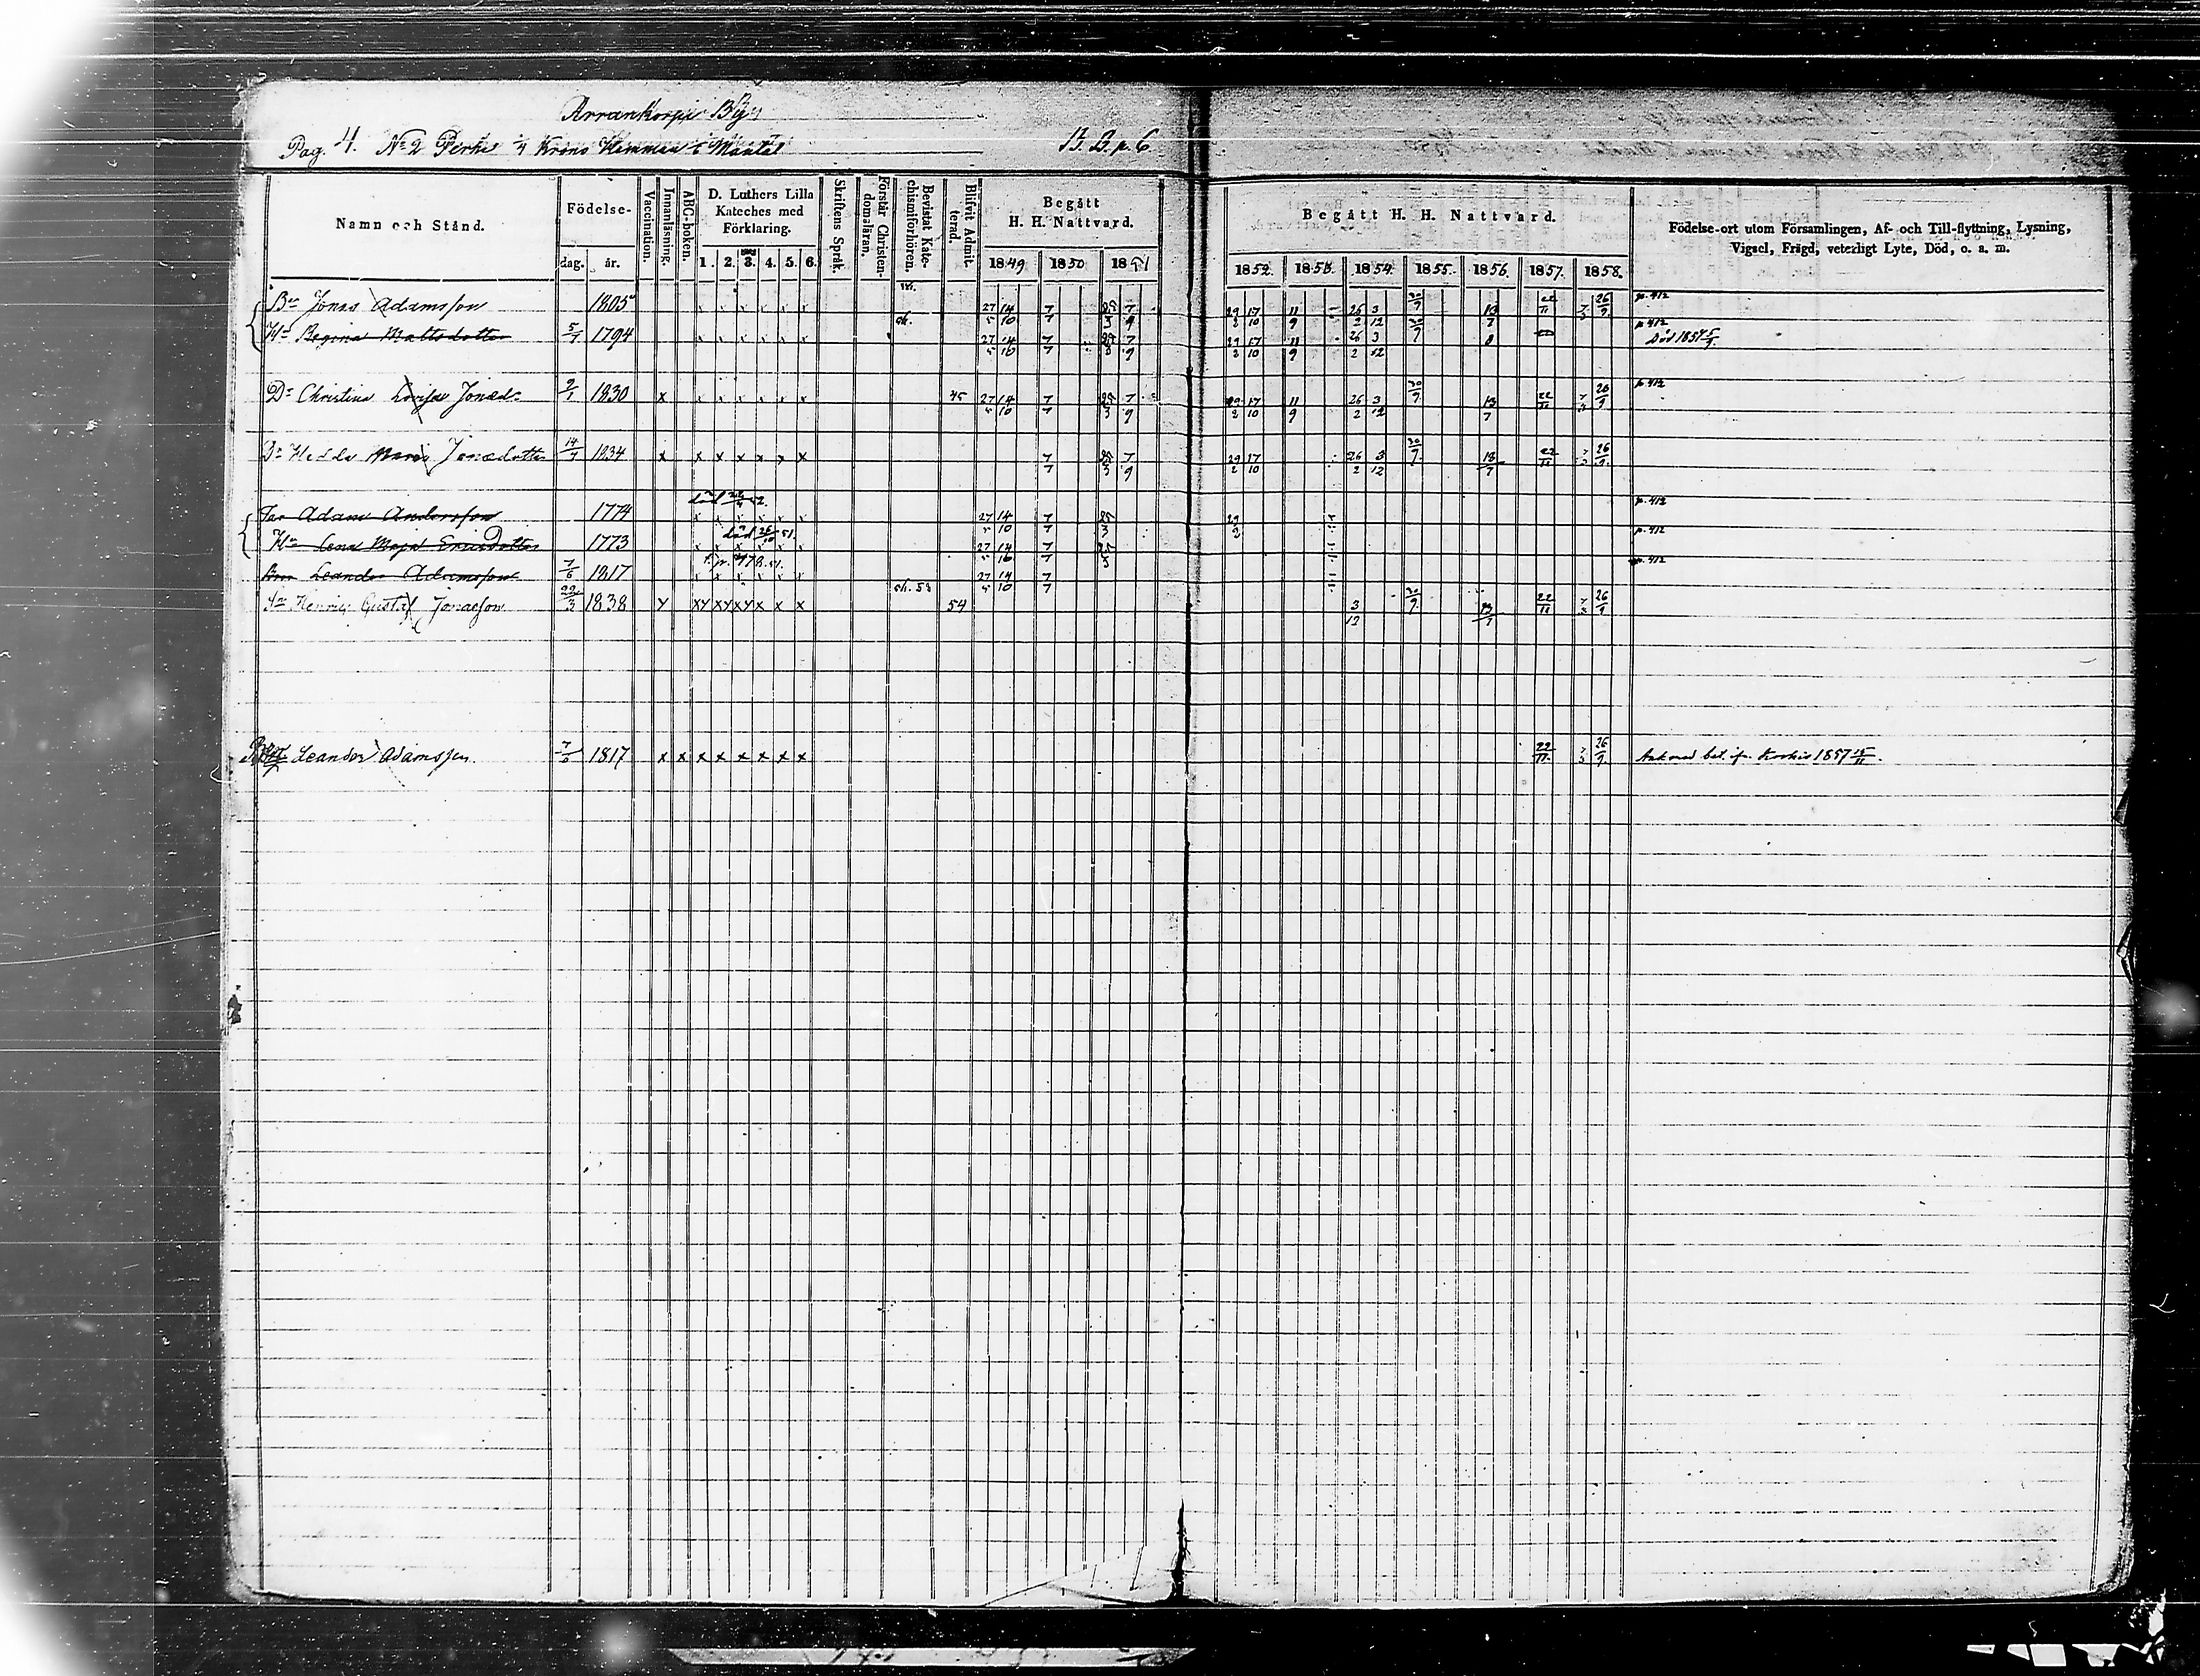 Arrankorpi By
Pag. 4. No 2 Perhe Krono Hemman Mantal B. B. p. 6
Namn och Stånd. Födelse- dag. år. Vaccination. Innanläsning. ABC-boken. D. Luthers Lilla Kateches med Förklaring. 1. 2. 3. 4. 5. 6. Skriftens Språk. Förstår Christendomsläran. Bevistat Katechismiförhören. Blifvit Admitterad. Begått H. H. Nattvard. 1849 1850 1851
Begått H. H. Nattvard. 1852. 1853. 1854. 1855. 1856. 1857. 1858. Födelse-ort utom Församlingen, Af- och Till-flyttning, Lysning, Vigsel, Frägd, veterligt Lyte, Död, o. a. m.
Bn Jonas Adamsson 1805 27/5 14/10 7/7 25/3 7/9 29/2 17/10 11/9 26/2 3/12 30/9 13/7 22/11 7/3 26/9 p. 412
Hu Regina Mattsdotter 5/7 1794 27/5 14/10 7/7 25/3 7/9 29/2 17/10 11/9 26/2 3/12 30/9 p 412 Död 1857
Dr Christina Lovisa Jonæd. 9/1 1830 x 45 27/5 14/10 7/7 25/3 7/9 29/2 17/10 11/9 26/2 3/12 30/9 13/7 22/11 7/3 26/9 p 412
Dr Hedda Maria Jonædotter 14/7 1834 x x x x x x x 7/7 25/3 7/9 29/2 17/10 26/2 3/12 30/9 13/7 22/11 7/3 26/9
Far Adam Andersson 1774 död 27/5 14/10 7/7 25/3 29/2 p. 412
Hu Lena Maja Ericsdotter 1773 död 51. 27/5 14/10 7/7 25/3 p. 412
Leander Adamsson 7/6 1817 27/5 14/10 7/7 p. 412
Sn Henric Gustaf Jonasson 22/3 1838 54 3/12 30/9 13/7 22/11 7/3 26/9
Leander Adamsson. 7/6 1817 x x x x x x x x 22/11 7/3 26/9 1857